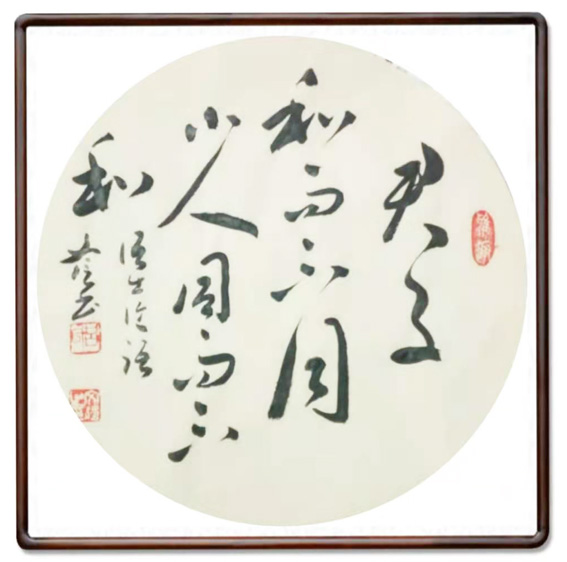 君子
和而不同
小人同而不
和
语出论语